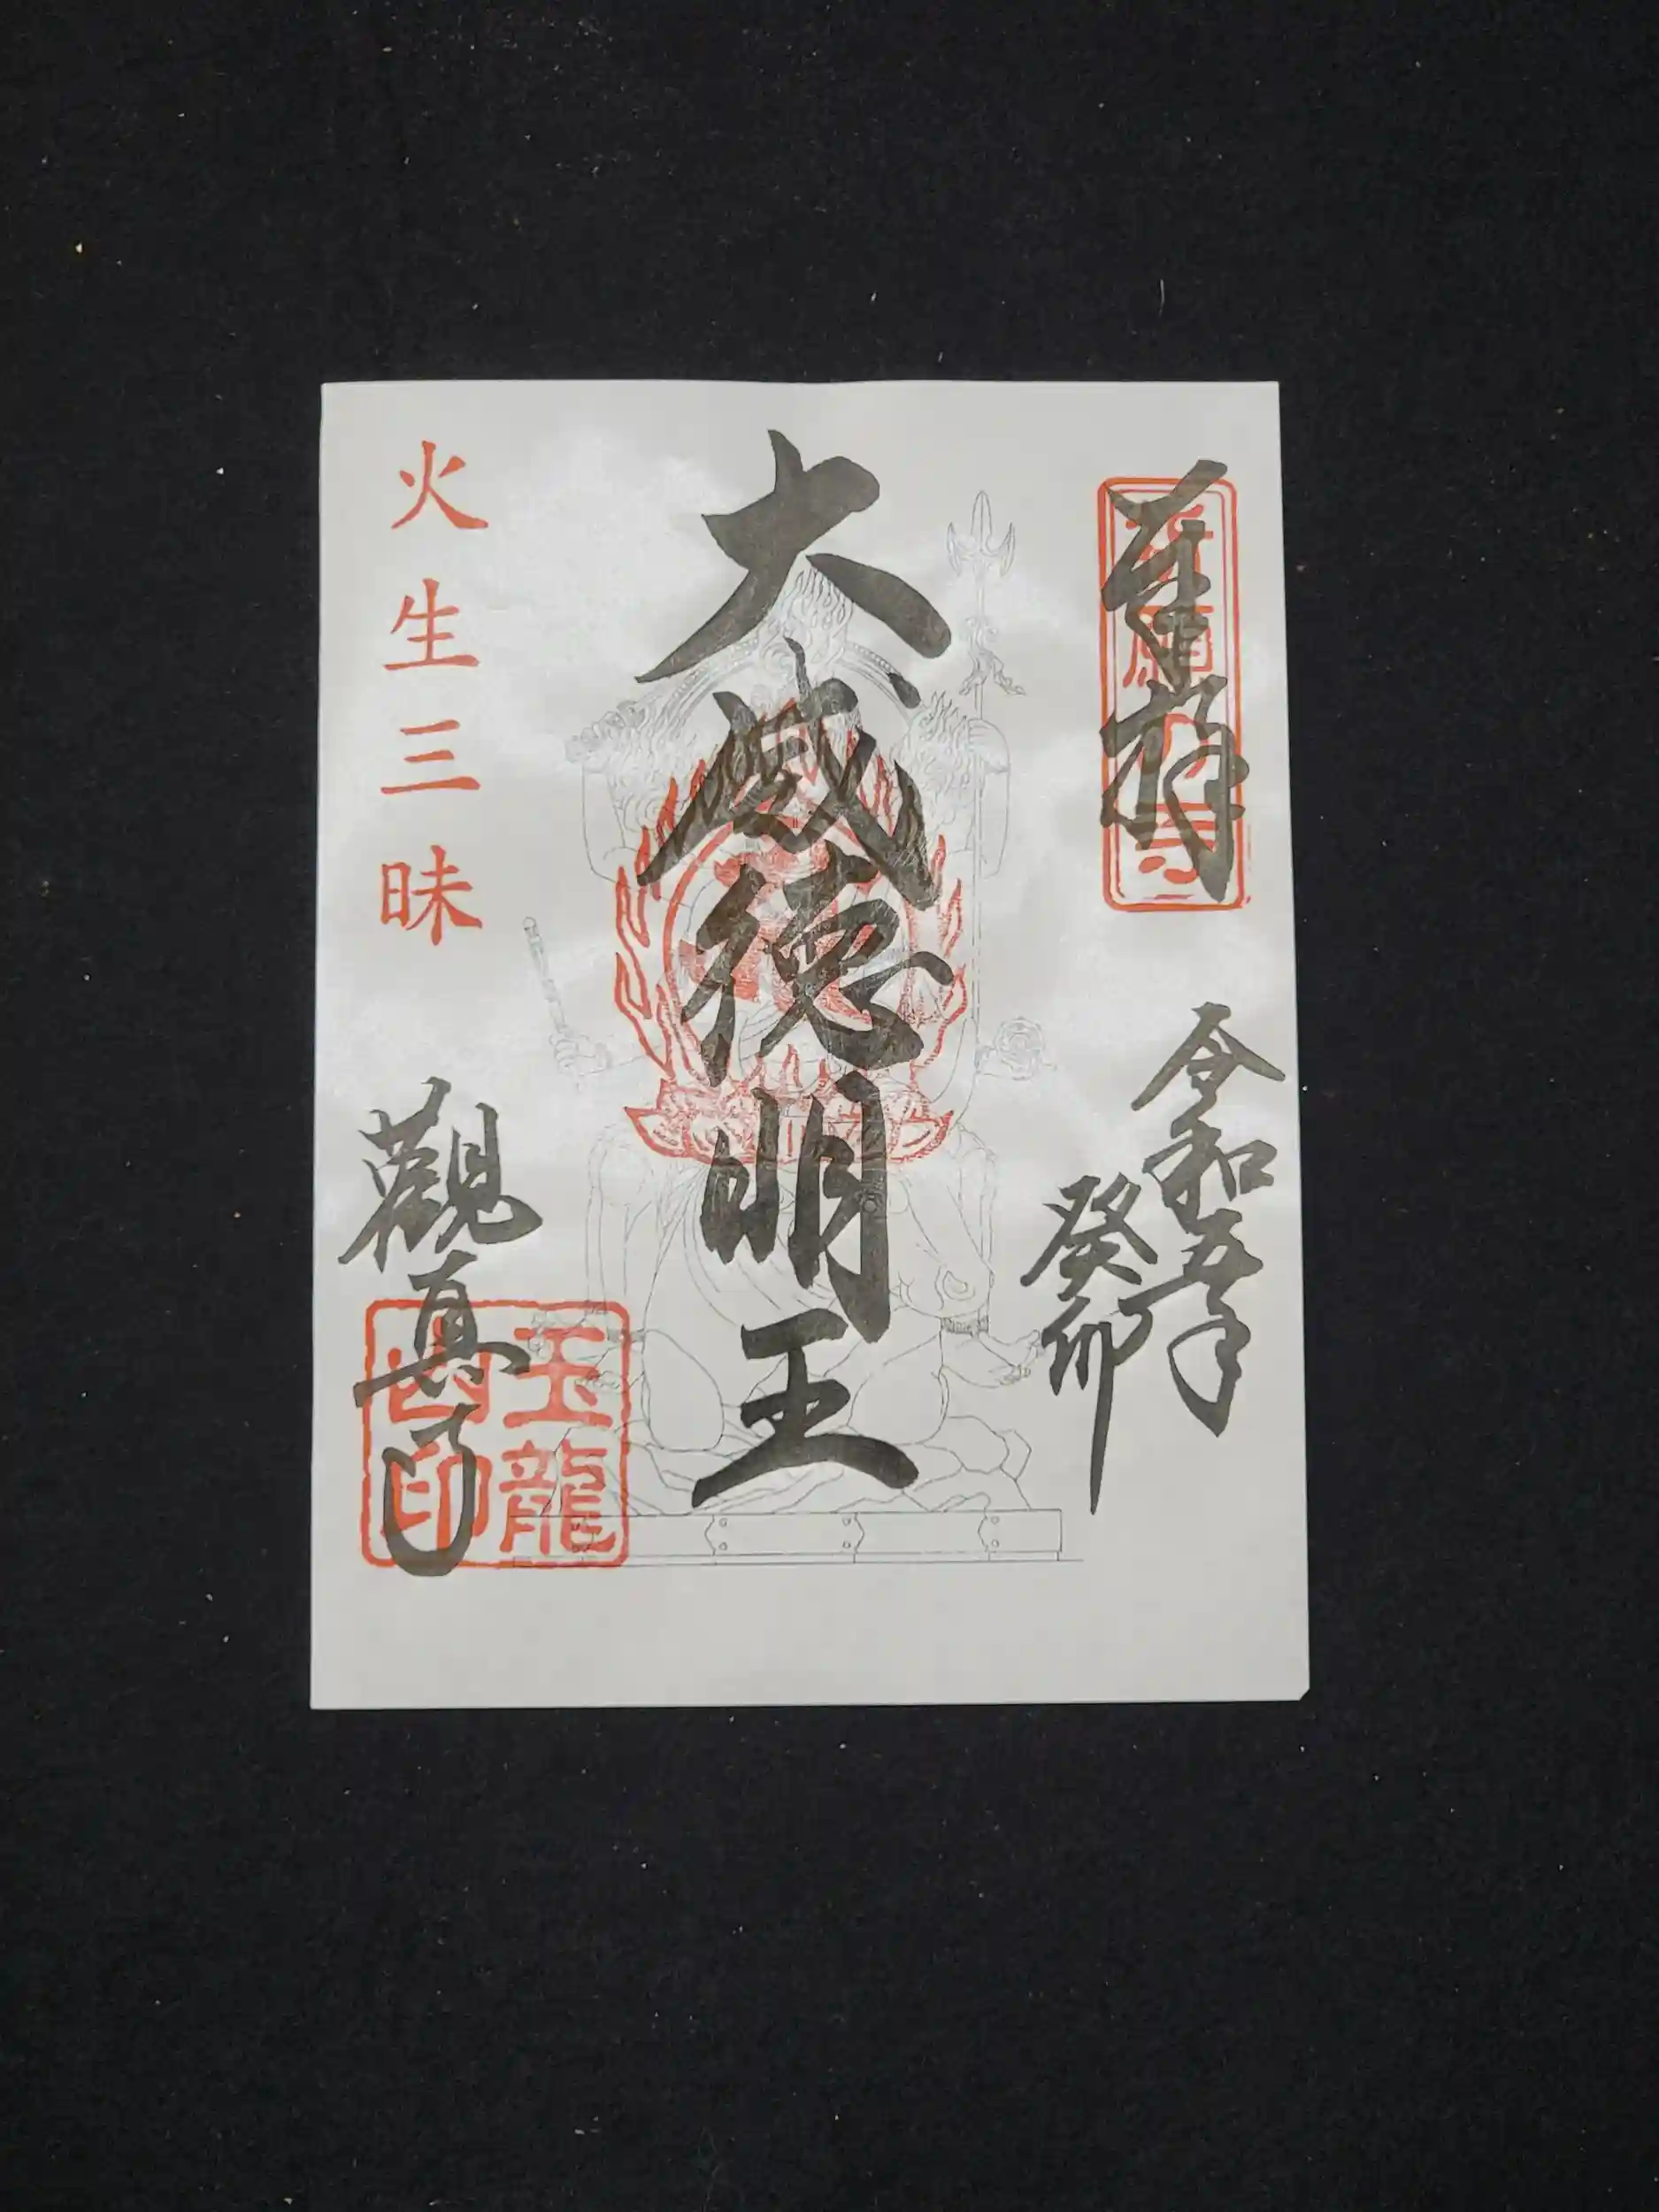 奉拝
令和五年
癸卯
大威徳明王
火生三昧
觀真寺
玉龍
山印